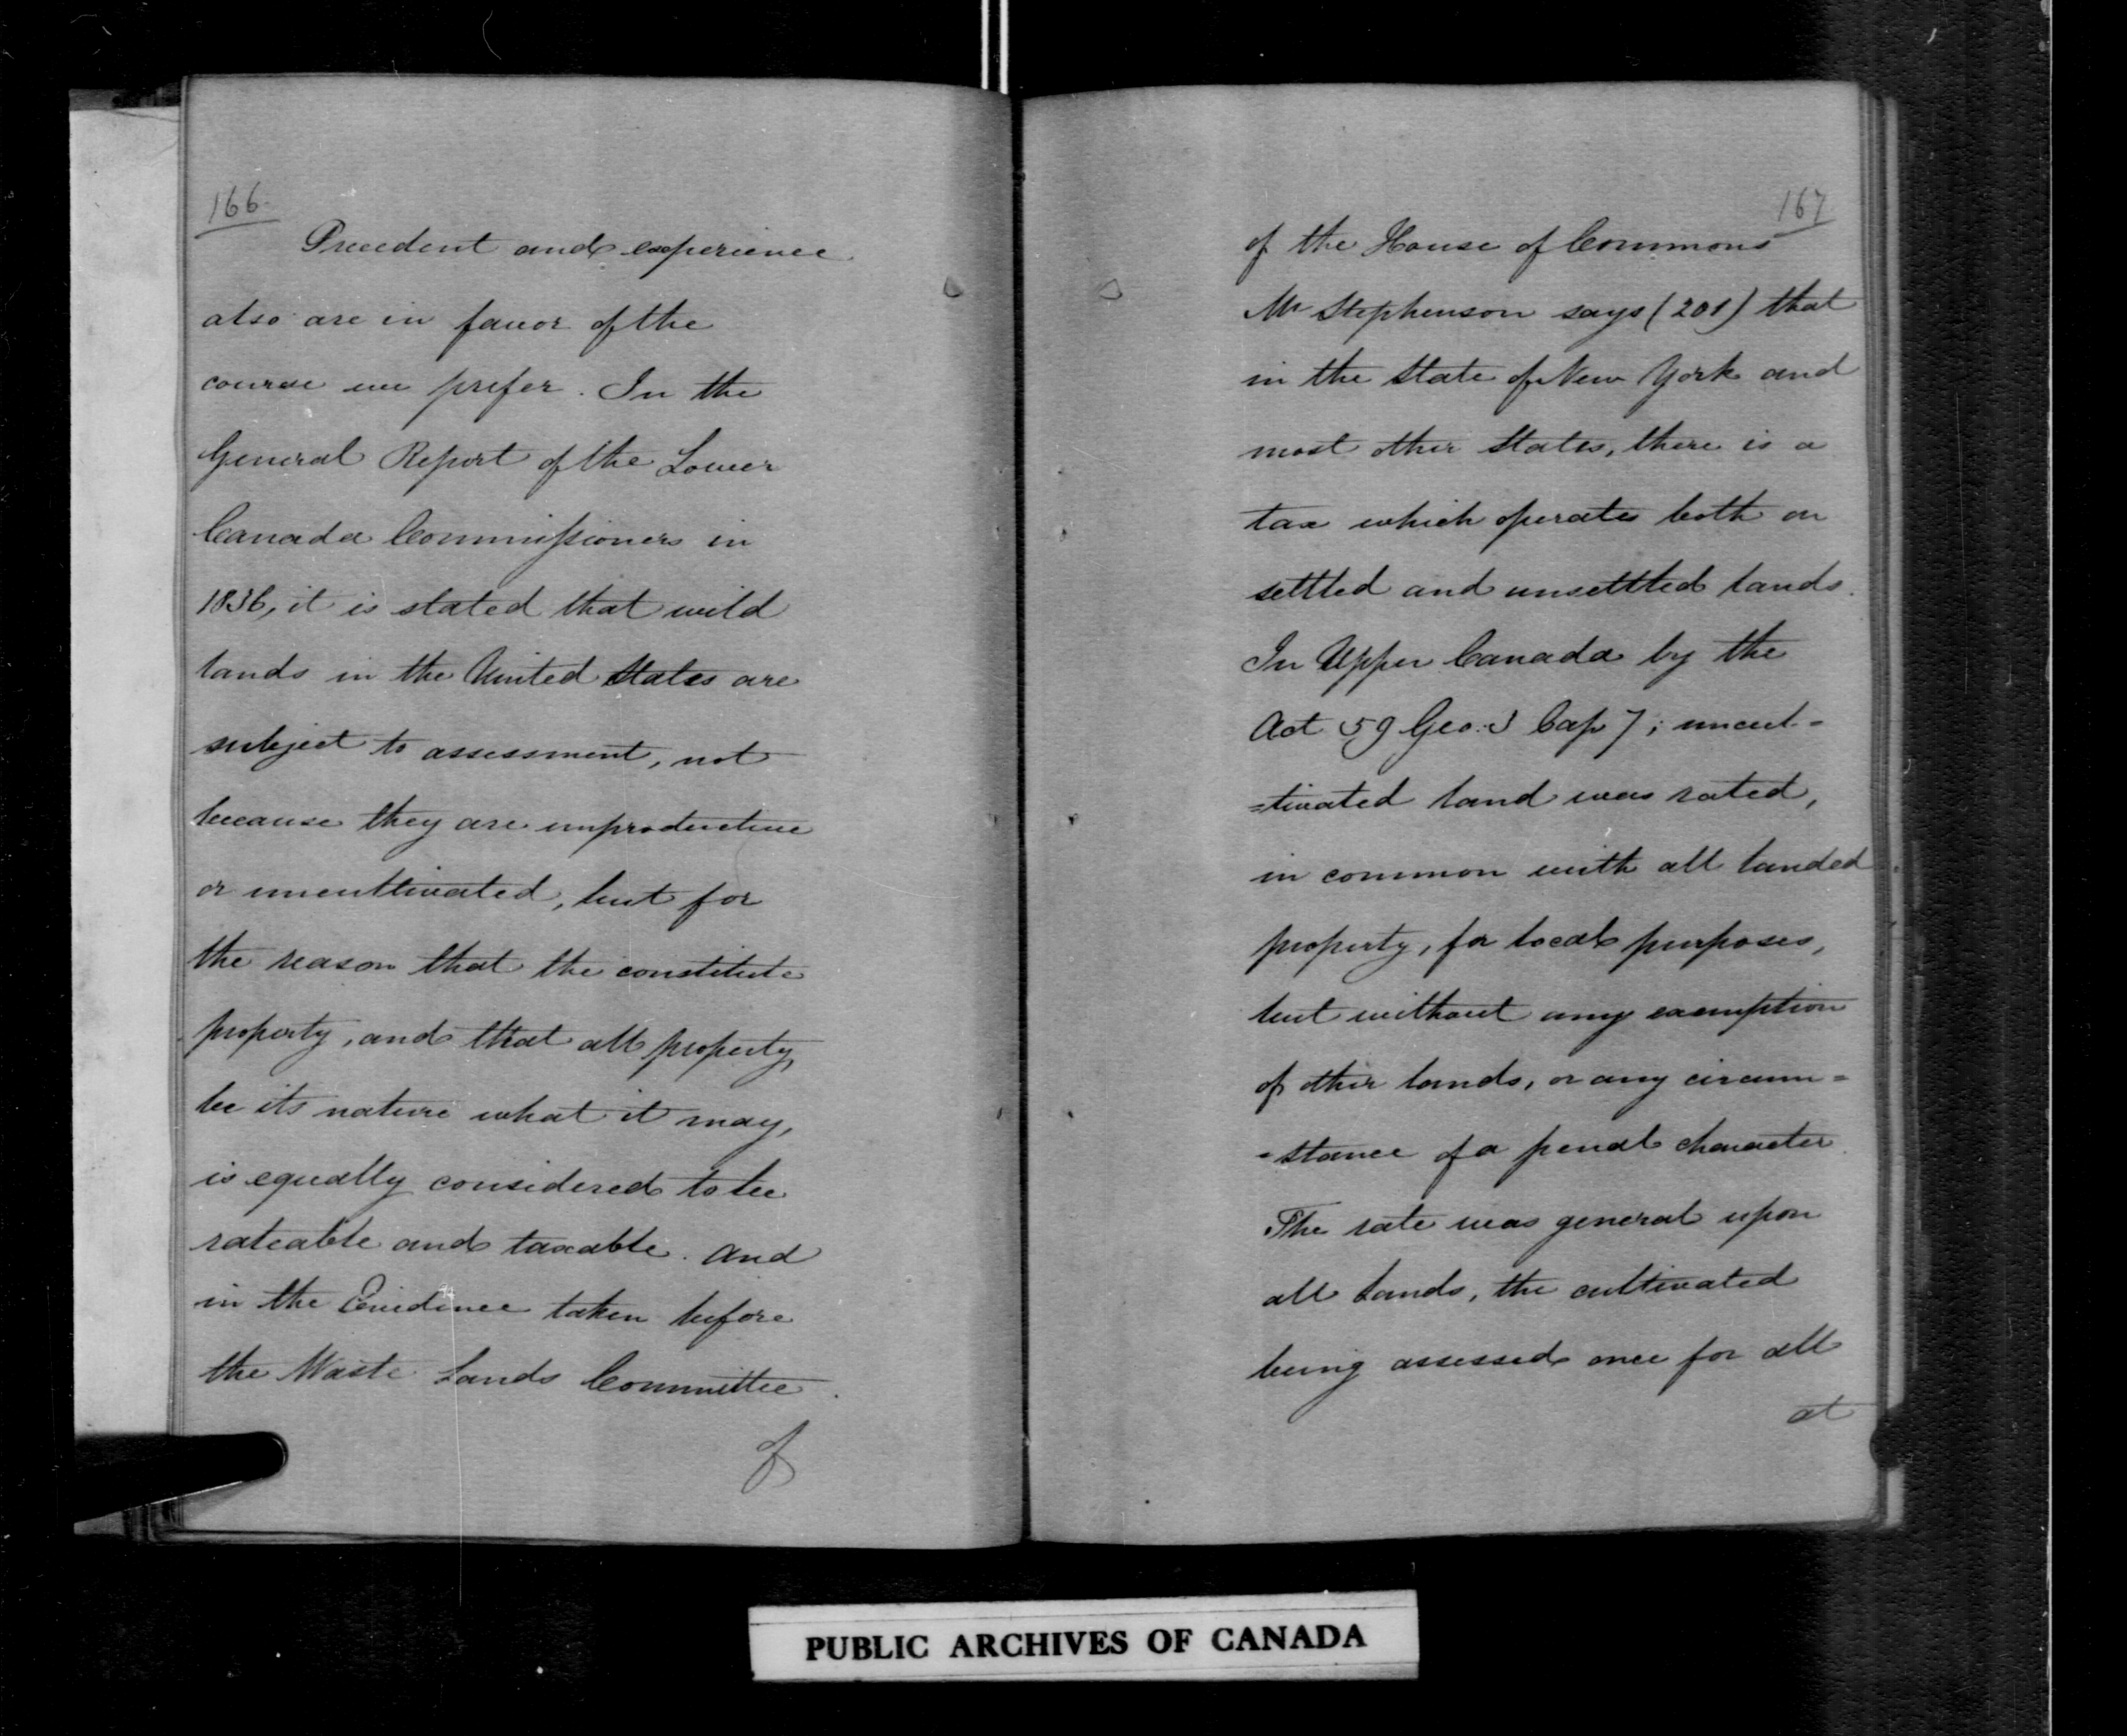 166.
Precedent and experience
also are in favor of the
course we prefer. In the
General Report of the Lower
Canada Commissioners in
1836, it is stated that wild
lands in the United States are
subject to assessment, not
because they are unproductive
or uncultivated, but for
the reason that the constitute
property, and that all property,
be its nature what it may,
is equally considered to be
rateable and taxable. And
in the Evidence taken before
the Waste Lands Committee
of
167
of the House of Commons
Mr Stephenson says (201) that
in the State of New York and
most other States, there is a
tax which operates both on
settled and unsettled lands.
In Upper Canada by the
Act 59 Geo: 3 Cap 7; uncul=
=tivated land was rated,
in common with all landed
property, for local purposes,
but without any exemption
of other lands, or any circum=
=stance of a penal character.
The rate was general upon
all Lands, the cultivated
being assessed once for all
at
PUBLIC ARCHIVES OF CANADA